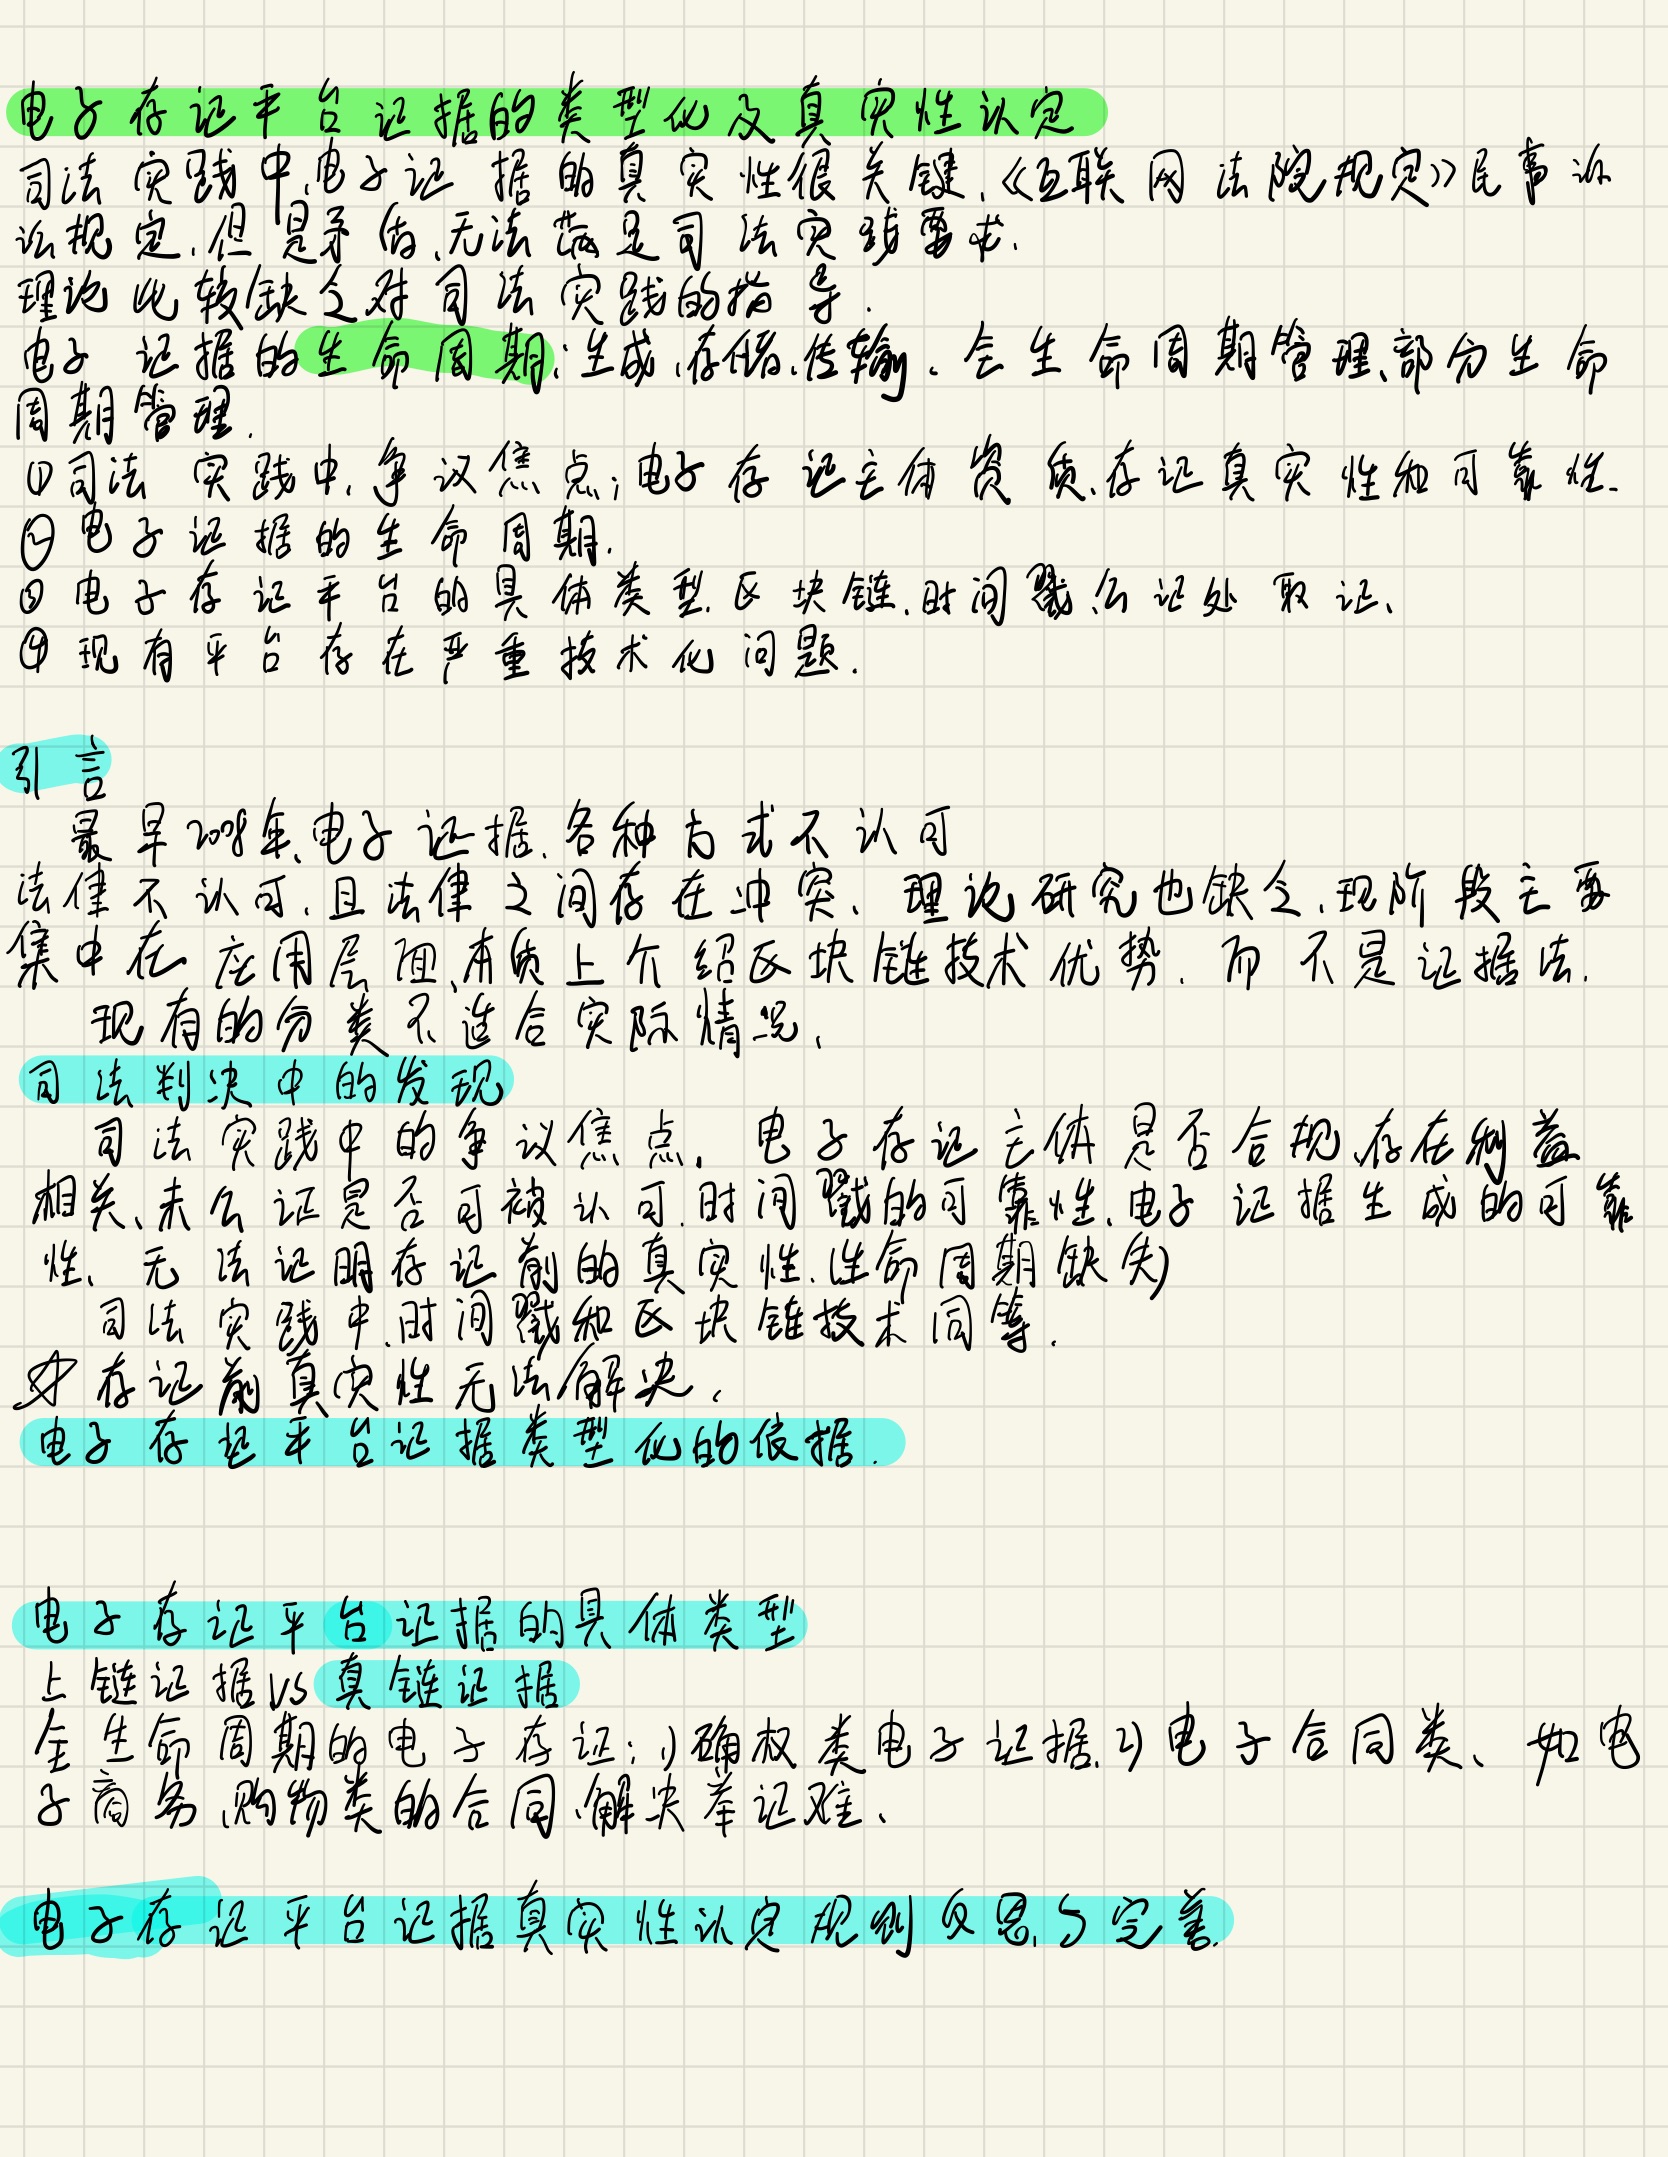 电子存证平台证据的类型化及真实性认定
司法实践中、电子证据的真实性很关键、《互联网法院规定》民事诉
讼规定、但是矛盾、无法满足司法实践要求、
理论也较缺乏对司法实践的指导.
电子证据的生命周期:生成、存储、传输、全生命周期管理、部分生命
周期管理.
①司法实践中、争议焦点;电子存证主体资质、存证真实性和可靠性.
②电子证据的生命周期.
③电子存证平台的具体类型.区块链、时间戳、公证处取证、
④现有平台存在严重技术化问题.
引言
最早2008年、电子证据、各种方式不认可
法律不认可、且法律之间存在冲突、理论研究也缺乏、现阶段主要
集中在应用层面、本质上介绍区块链技术优势、而不是证据法.
现有的分类不适合实际情况、
司法判决中的发现
司法实践中的争议焦点、电子存证主体是否合规、存在利益
相关、未公证是否可被认可、时间戳的可靠性、电子证据生成的可靠
性、无法证明存证前的真实性、(生命周期缺失)
司法实践中、时间戳和区块链技术同等.
存证前真实性无法解决、
电子存证平台证据类型化的依据.
电子存证平台证据的具体类型
上链证据VS真链证据
全生命周期的电子存证:1)确权类电子证据、2)电子合同类、如电
子商务、购物类的合同、解决举证难、
电子存证平台证据真实性认定规则反思与完善.